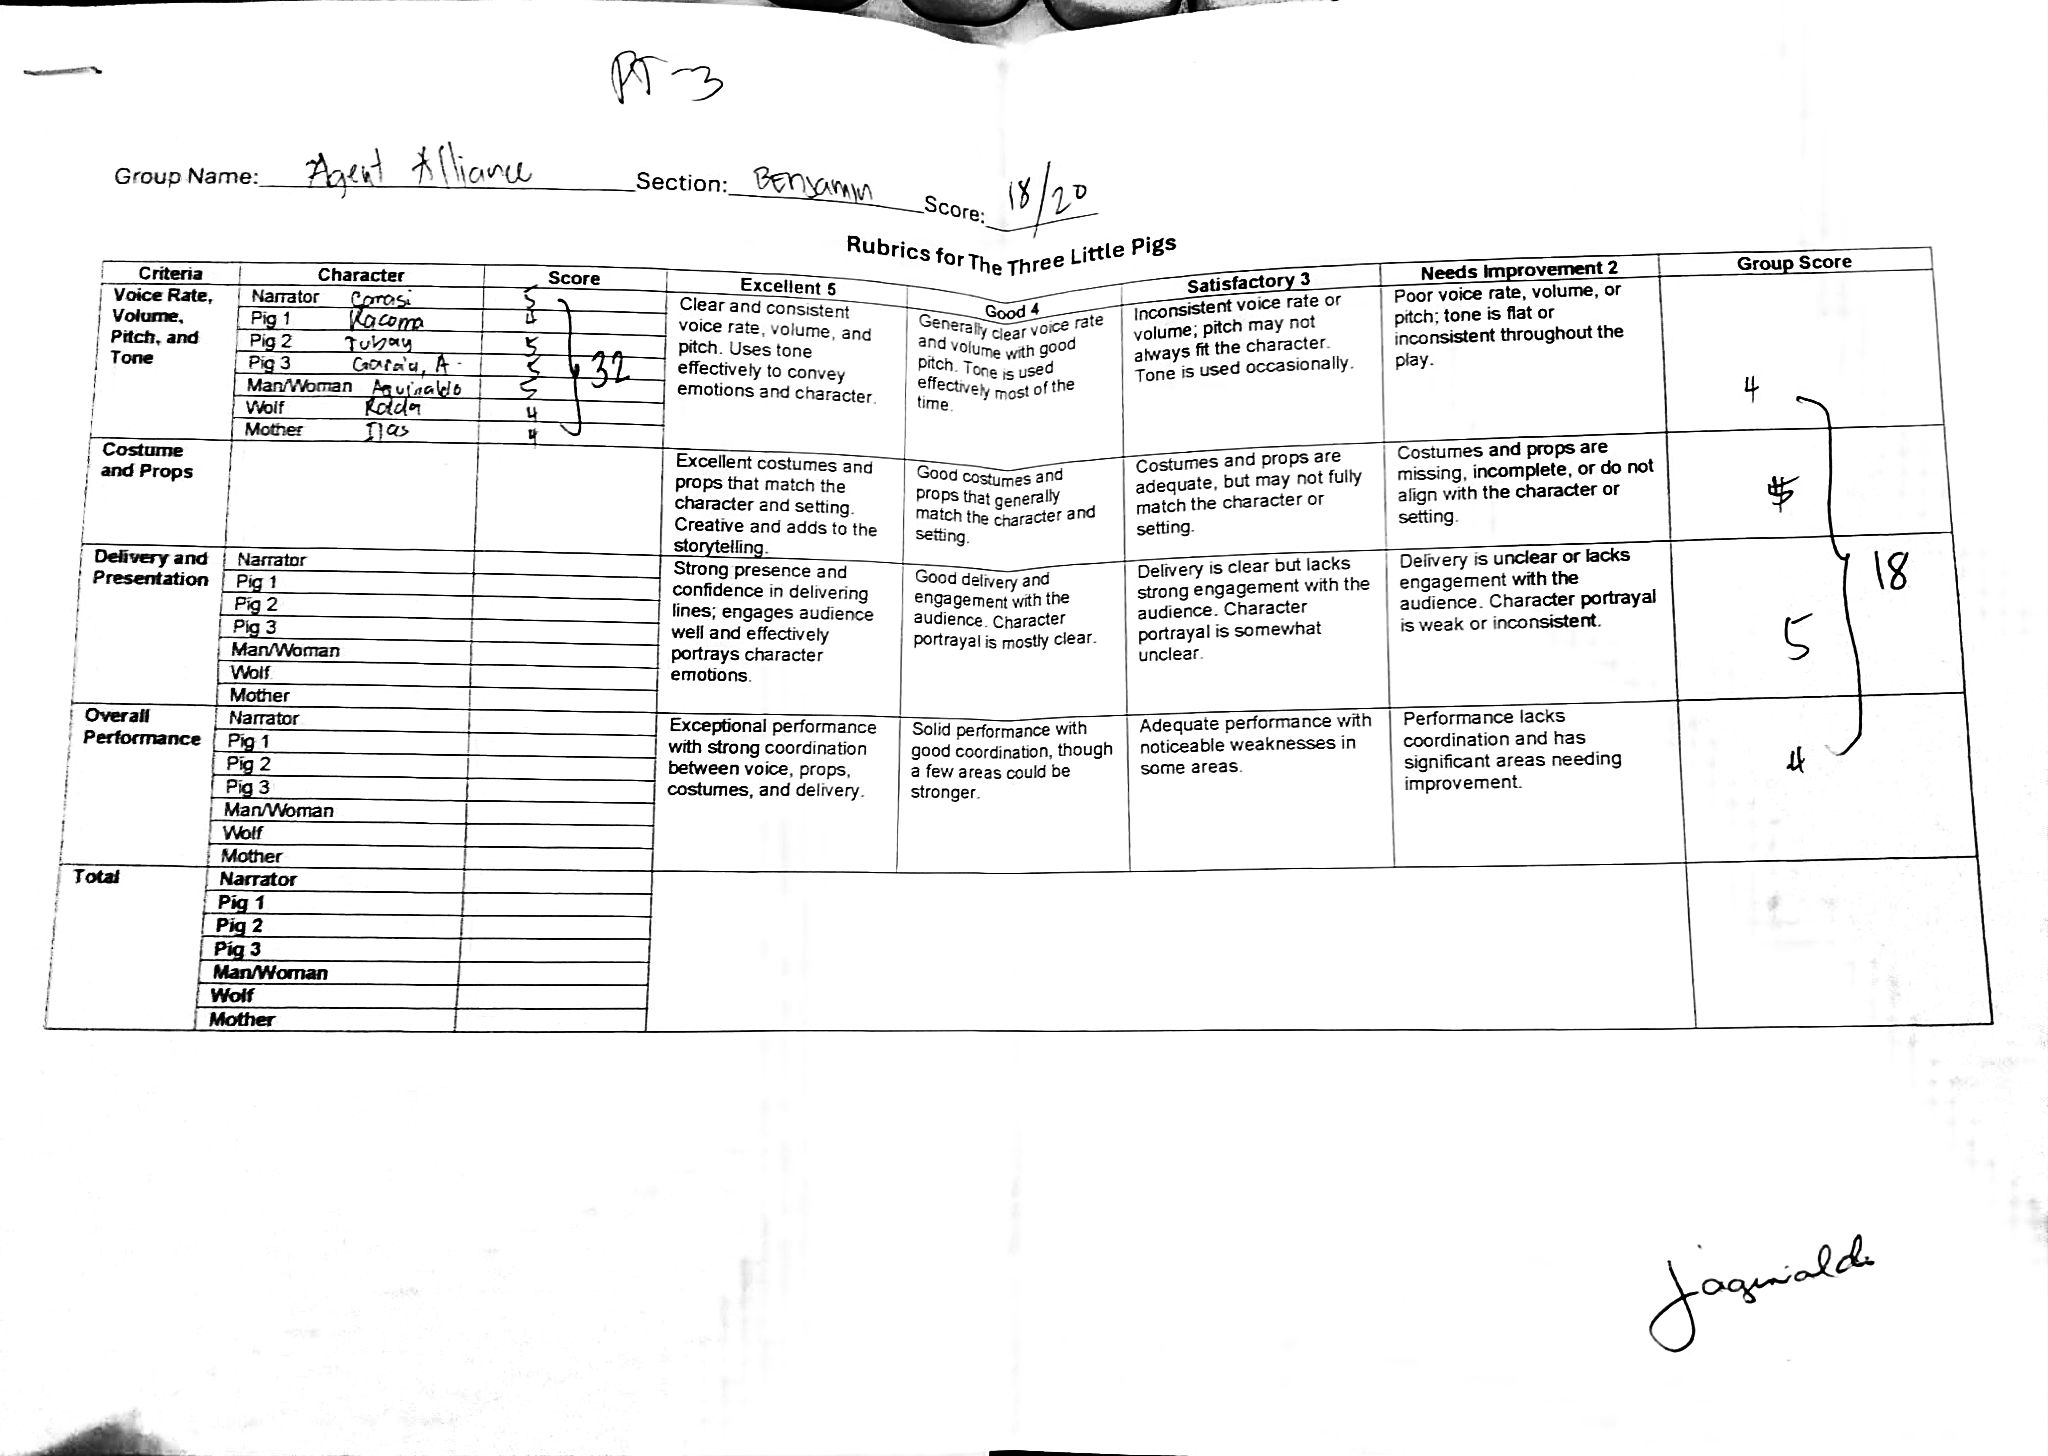 PT-3
Group Name: Agent Alliance Section: Benjamin Score: 18/20
Rubrics for The Three Little Pigs
Criteria Character Score Excellent 5 Good 4 Satisfactory 3 Needs Improvement 2 Group Score
Voice Rate,
Volume,
Pitch, and
Tone
Narrator 5
Pig 1 Racoma 4
Pig 2 Tubay 5
Pig 3 Garcia, A. 5
Man/Woman Aguinaldo 5
Wolf 4
Mother Ilas 4
32
Clear and consistent
voice rate, volume, and
pitch. Uses tone
effectively to convey
emotions and character.
Generally clear voice rate
and volume with good
pitch. Tone is used
effectively most of the
time.
Inconsistent voice rate or
volume; pitch may not
always fit the character.
Tone is used occasionally.
Poor voice rate, volume, or
pitch; tone is flat or
inconsistent throughout the
play.
4
Costume
and Props
Excellent costumes and
props that match the
character and setting.
Creative and adds to the
storytelling.
Good costumes and
props that generally
match the character and
setting.
Costumes and props are
adequate, but may not fully
match the character or
setting.
Costumes and props are
missing, incomplete, or do not
align with the character or
setting.
Delivery and
Presentation
Narrator
Pig 1
Pig 2
Pig 3
Man/Woman
Wolf
Mother
Strong presence and
confidence in delivering
lines; engages audience
well and effectively
portrays character
emotions.
Good delivery and
engagement with the
audience. Character
portrayal is mostly clear.
Delivery is clear but lacks
strong engagement with the
audience. Character
portrayal is somewhat
unclear.
Delivery is unclear or lacks
engagement with the
audience. Character portrayal
is weak or inconsistent.
5
18
Overall
Performance
Narrator
Pig 1
Pig 2
Pig 3
Man/Woman
Wolf
Mother
Exceptional performance
with strong coordination
between voice, props,
costumes, and delivery.
Solid performance with
good coordination, though
a few areas could be
stronger.
Adequate performance with
noticeable weaknesses in
some areas.
Performance lacks
coordination and has
significant areas needing
improvement.
4
Total
Narrator
Pig 1
Pig 2
Pig 3
Man/Woman
Wolf
Mother